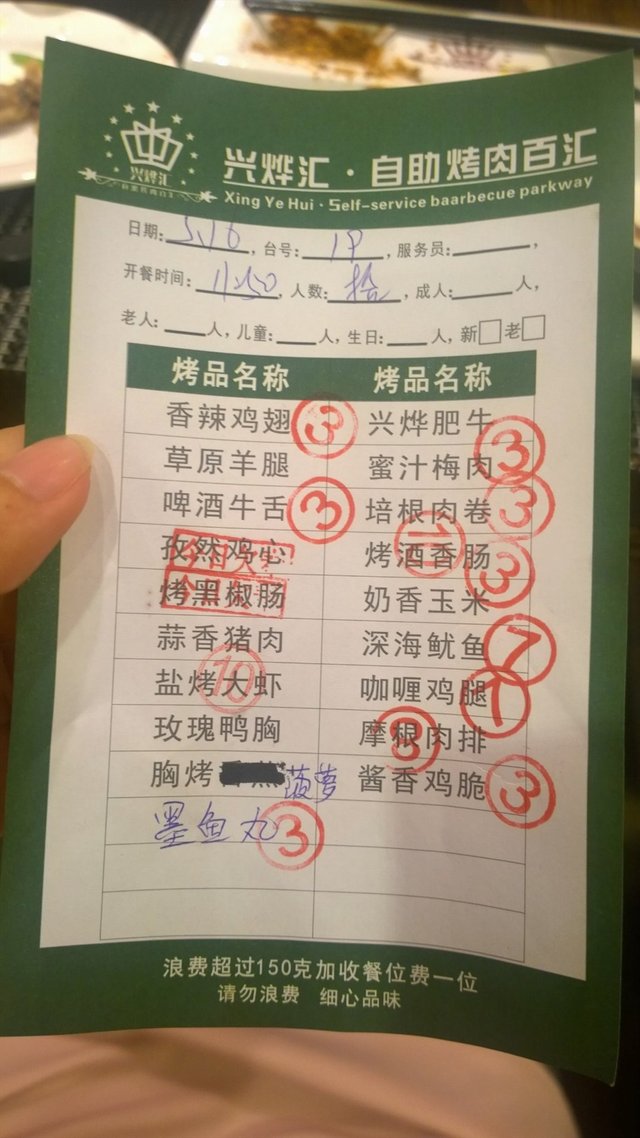 兴烨汇
兴烨汇·自助烤肉百汇
Xing Ye Hui · Self-service baarbecue parkway
日期: 5.16, 台号: 19, 服务员: ,
开餐时间: 11:50, 人数: 拾, 成人: 人,
老人: 人, 儿童: 人, 生日: 人, 新 老
烤品名称 烤品名称
香辣鸡翅 3 兴烨肥牛
草原羊腿 蜜汁梅肉 3
啤酒牛舌 3 培根肉卷 3
孜然鸡心 烤酒香肠 11
烤黑椒肠 奶香玉米 3
蒜香猪肉 深海鱿鱼 7
盐烤大虾 10 咖喱鸡腿 1
玫瑰鸭胸 摩根肉排 3
胸烤 菠萝 酱香鸡脆 3
墨鱼丸 3
浪费超过150克加收餐位费一位
请勿浪费 细心品味